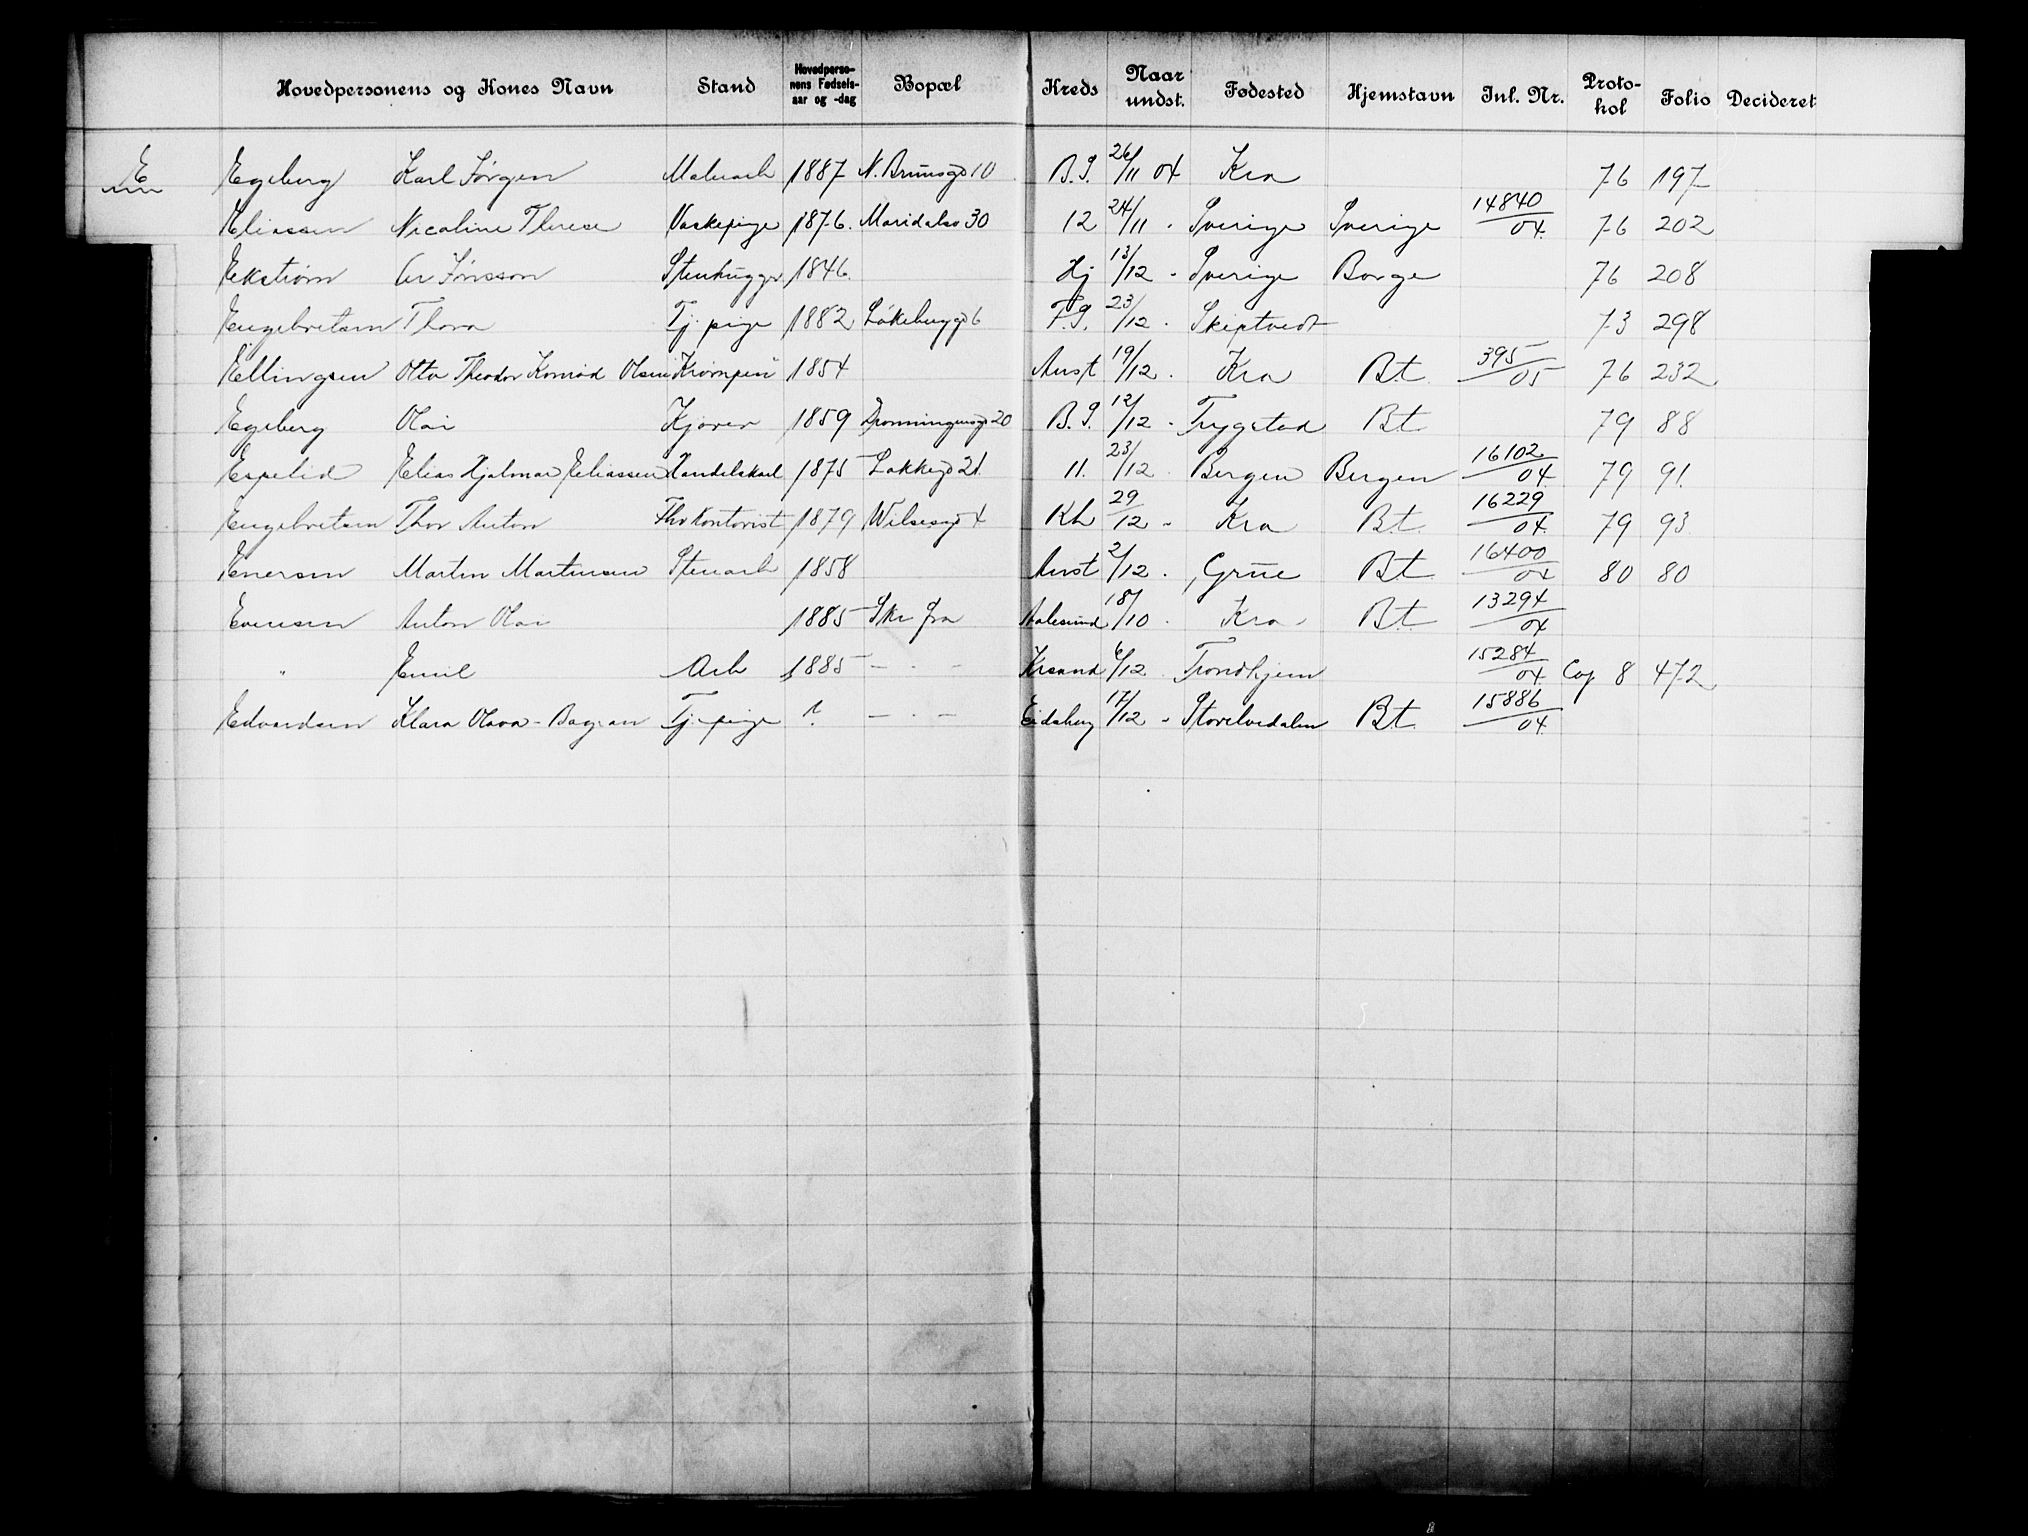 Hovedpersonens og Kones Navn Stand Hovedpersonens Fødselsaar og -dag Bopæl Kreds Naar undst. Fødested Hjemstavn Jnl. Nr. Protokol Folio Decideret
E Egeberg Karl Jørgen Malerarb 1887 N. Brunsgd 10 B.G. 26/11 04 Kra 76 197
Eliassen Nicoline Therese Vaskepige 1876. Maridalsv 30 12 24/11 . Sverige Sverige 14840/04. 76 202
Ekstrøm Jönsson Stenhugger 1846. Hj 13/12 - Sverige Borge 76 208
Engebretsen Thora Tj. pige 1882 Løkkebergd 6 F.G. 23/12 . Skiptvedt 73 298
Ellingsen Otto Theodor Konrad Olsen 1854 Aust 19/12 . Kra B.t. 395/05 76 232
Egeberg Olai Kjører 1859 Dronningensgd 20 B.G. 12/12 - Trygstad B.t. 79 88
Espelid Elias Hjalmar Eliassen Handelskarl 1875 Løkkegd 21. 11. 23/12 . Bergen Bergen 16102/04. 79 91.
Engebretsen Thor Anton Fhv Kontorist 1879 Wilsesgd 4 Kh 29/12 - Kra B.t. 16229/04. 79 93
Enersen Martin Martinsen Stenarb 1858 Aust 2/12 . Grue B.t. 16400/04 80 80
Evensen Anton Olai 1885 Skr fra Aalesund 18/10 . Kra B.t. 13294/04
" Emil Arb 1885 — . — Krsand 6/12 . Trondhjem 15284/04. Cop 8 472
Edvardsen Klara Olava - Tj. pige ? — . — Eidsberg 17/12 - Storelvedalen B.t. 15886/04.